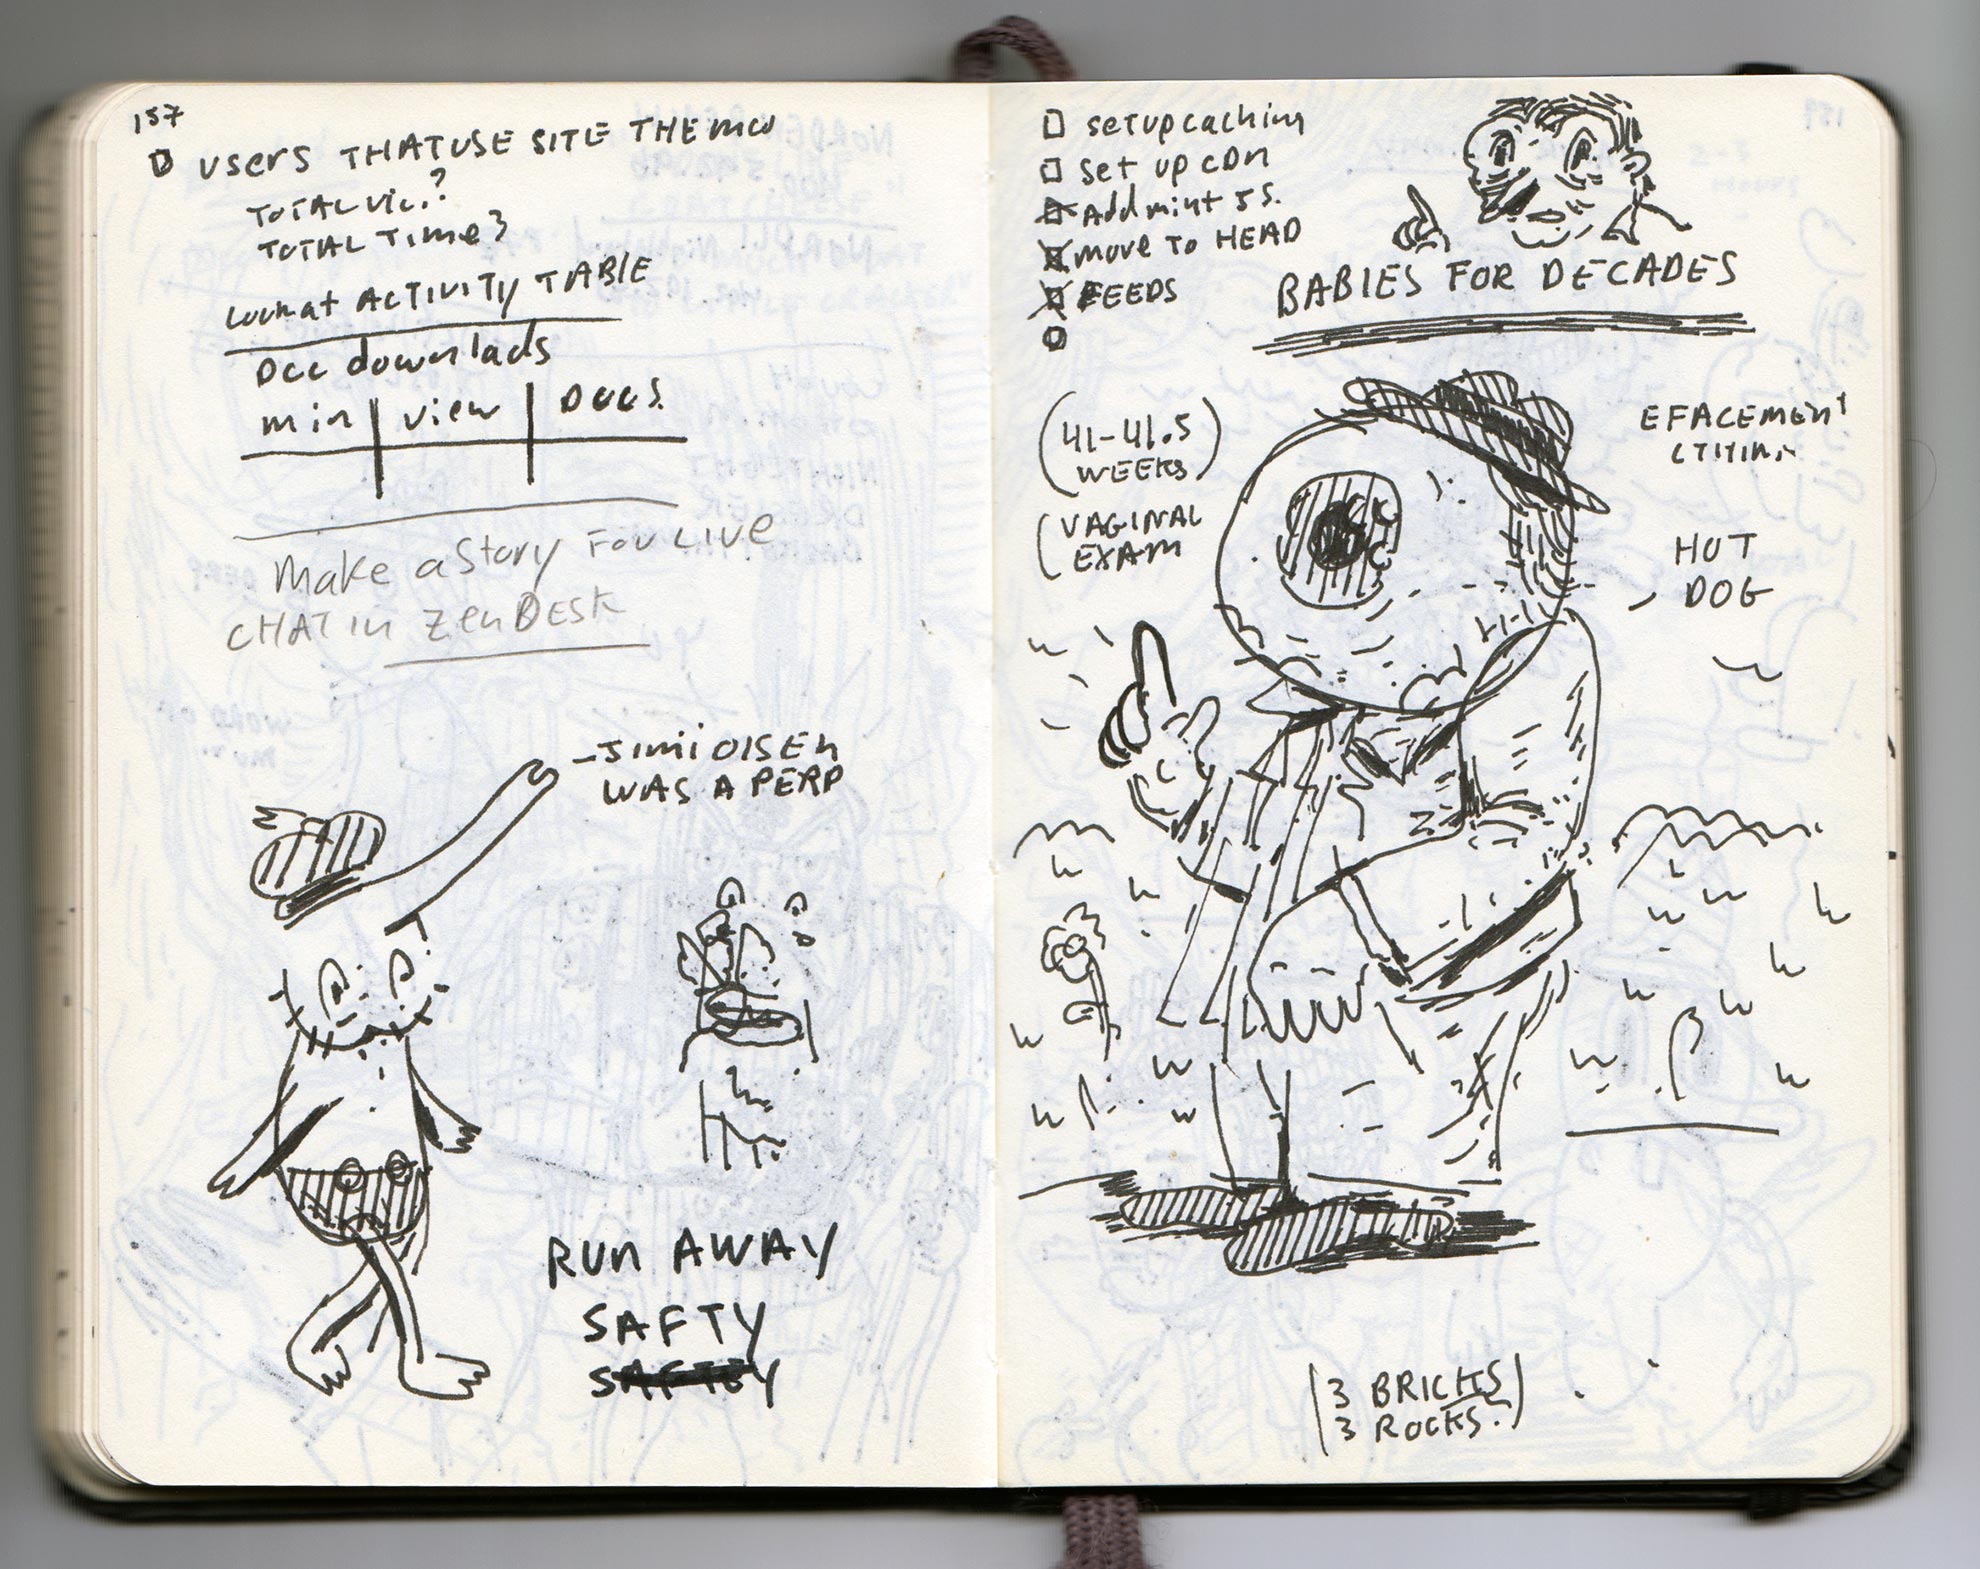 157
USERS THAT USE SITE THE MOW
TOTAL VIC.?
TOTAL TIME?
LOOK at ACTIVITY TABLE
DCC downlads
min view DOCS.
Make a Story FOU LIVE
CHAT in ZenDESK
-JIMI OLSEN
WAS A PERP
RUN AWAY
SAFTY
setup caching
set up CDN
Add mint 5S.
move TO HEAD
FEEDS
BABIES FOR DECADES
(41-41.5
WEEKS)
(VAGINAL
EXAM
EFACEMENT
HOT
DOG
(3 BRICKS
3 ROCKS.)